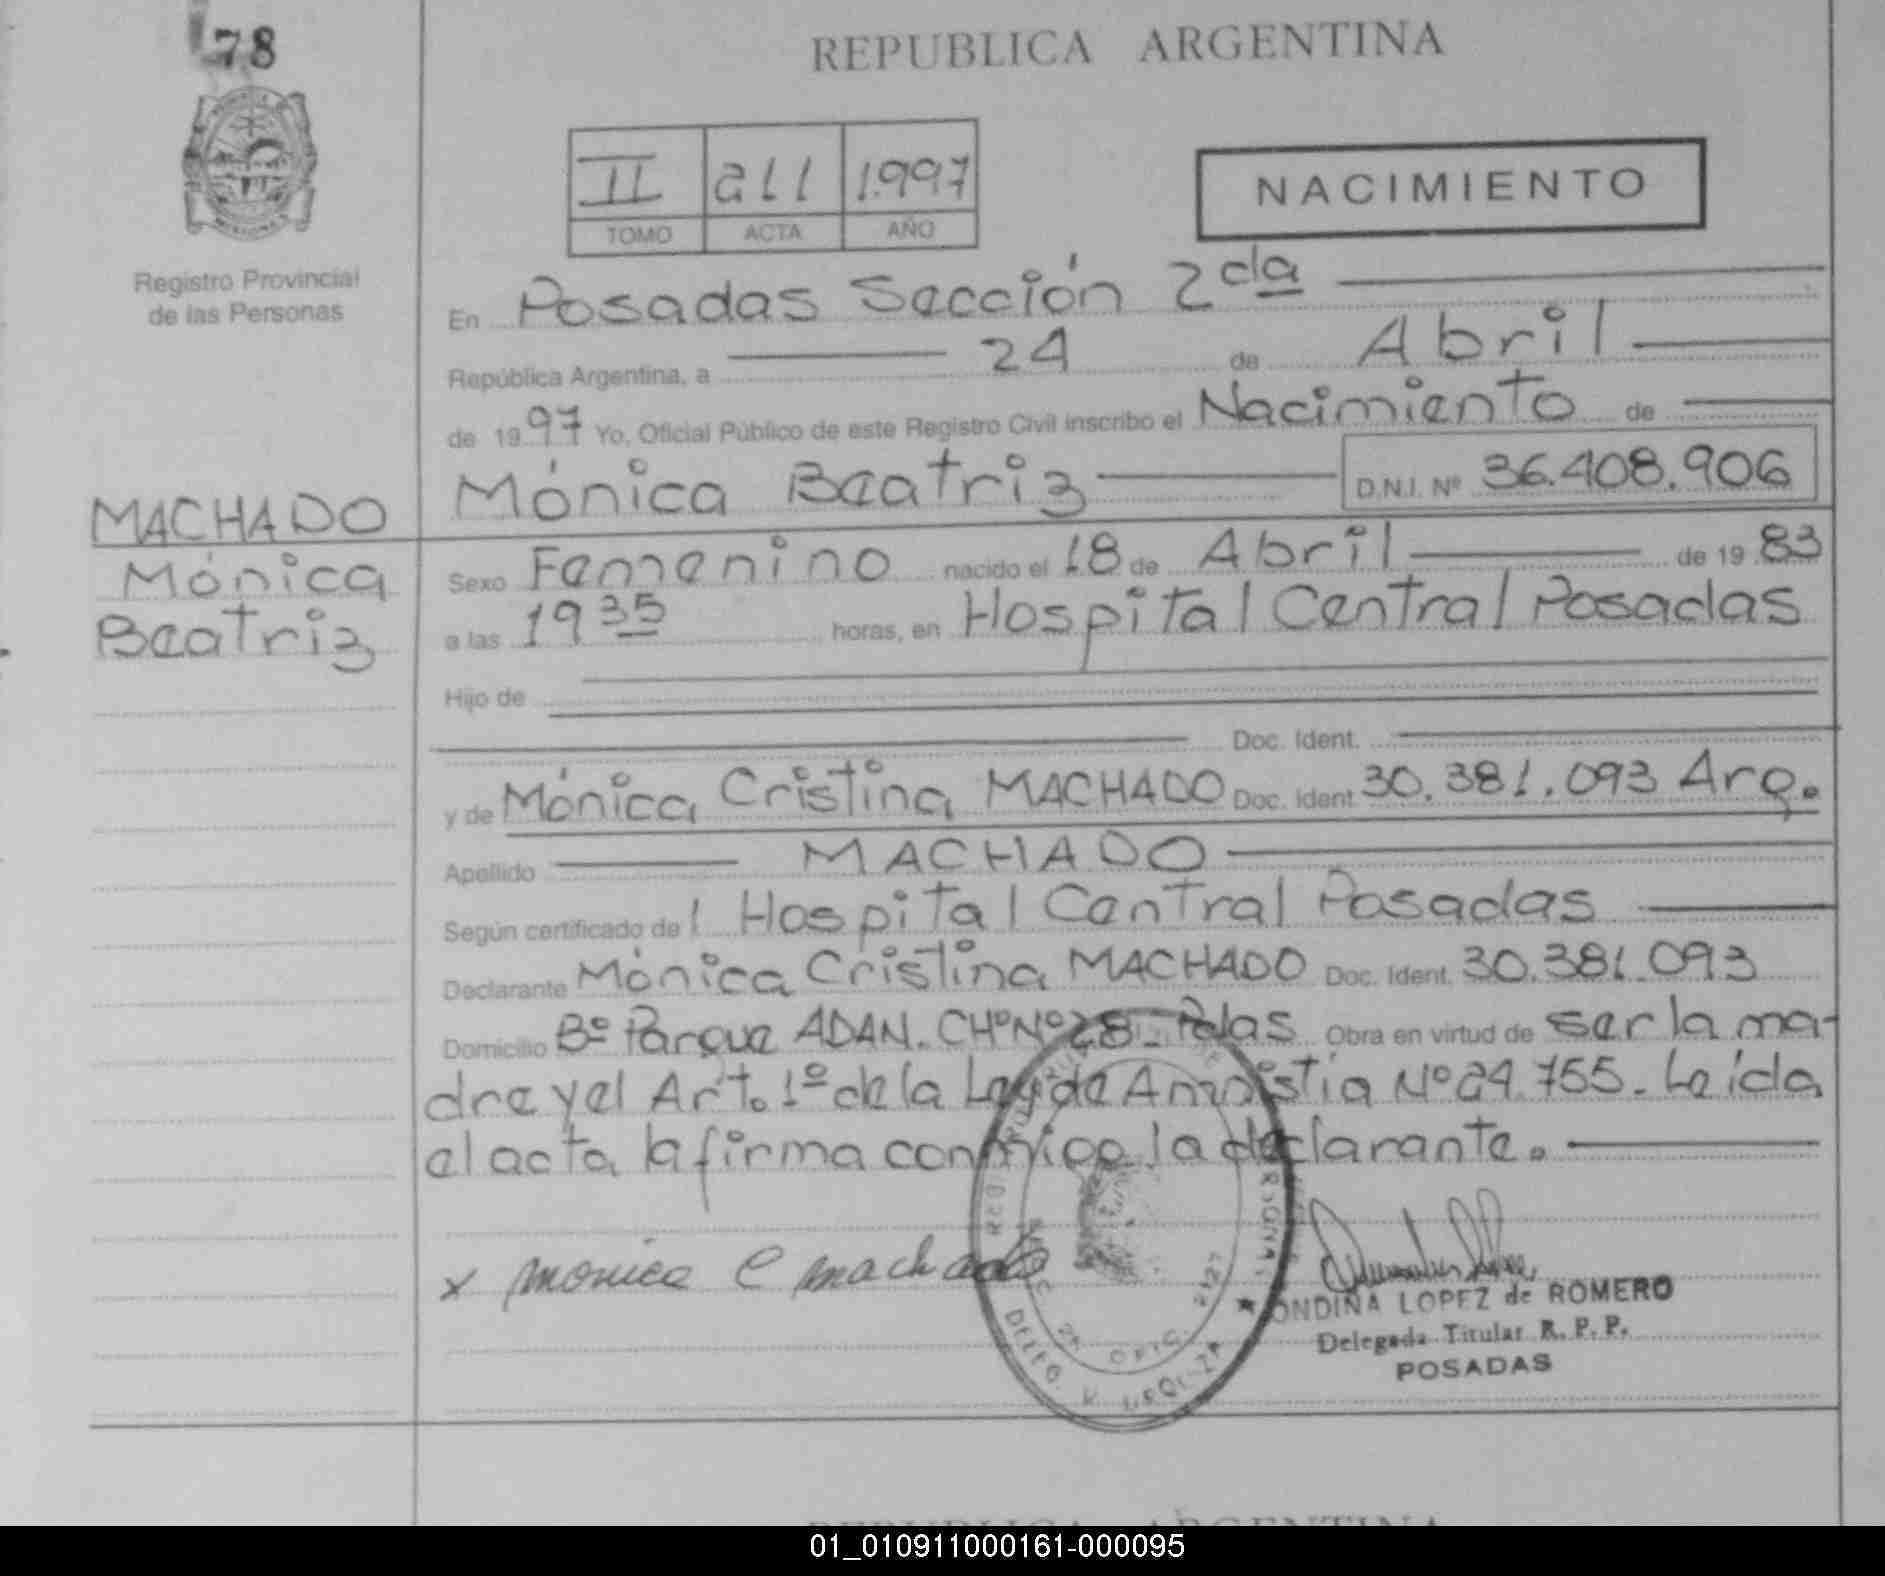 78
REPUBLICA ARGENTINA
II 211 1.997
TOMO ACTA AÑO
NACIMIENTO
Registro Provincial
de las Personas
En Posadas Sección 2cda
República Argentina, a 24 de Abril
de 1997 Yo, Oficial Público de este Registro Civil inscribo el Nacimiento de
Mónica Beatriz D.N.I. Nº 36.408.906
MACHADO
Mónica
Beatriz
Sexo Femenino nacido el 18 de Abril de 1983
a las 19 35 horas, en Hospital Central Posadas
Hijo de
Doc. Ident.
y de Mónica Cristina MACHADO Doc. Ident 30.381.093 Arg.
Apellido MACHADO
Según certificado del Hospital Central Posadas
Declarante Mónica Cristina MACHADO Doc. Ident. 30.381.093
Domicilio Bº Parque ADAN. CHºNº28- Pdas Obra en virtud de ser la ma-
dre y el Art. 1º de la Ley de Amnistia Nº 24.755. Leída
el acta la firma conmigo la declarante.
x monica C machado
ONDINA LOPEZ de ROMERO
Delegada Titular R. P. P.
POSADAS
01_010911000161-000095